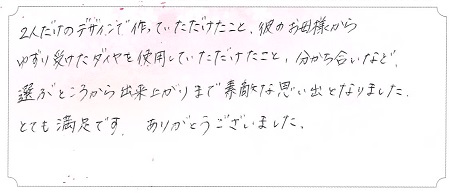 2人だけのデザインで作っていただけたこと、彼のお母様から
ゆずり受けたダイヤを使用していただけたこと、分かち合いなど、
選ぶところから出来上がりまで素敵な思い出となりました。
とても満足です。 ありがとうございました。